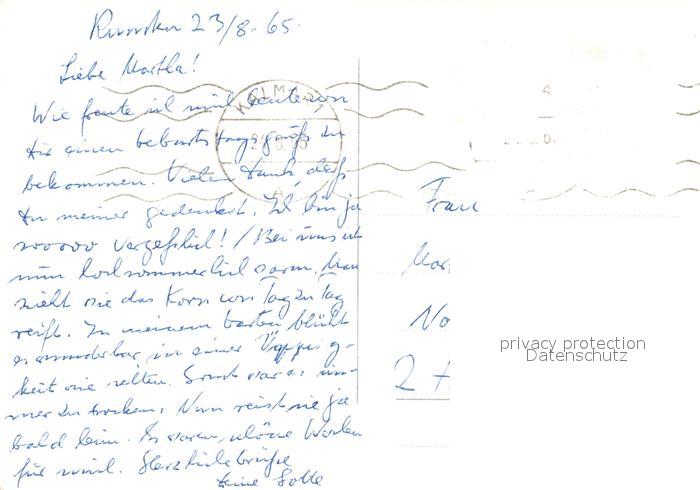 Rumska 23/8-65.
Liebe Martha!
Wie freute ich mich heute von
dir einen Geburtstagsgruß zu
bekommen. Vielen Dank, daß
du meiner gedenkst. Ich bin ja
soooo vergeßlich! / Bei uns ist
nun hochsommerlich warm. Man
sieht wie das Korn von Tag zu Tag
reift. In meinem Garten blüht
es wunderbar, in einer Üppig-
keit wie selten. Sonst war es im-
mer zu trocken. Nun reist sie ja
bald heim. Es waren schöne Wochen
für mich. Herzliche Grüße
deine Lotte
KALMAR 1
Frau
Mar
No
2
privacy protection
Datenschutz